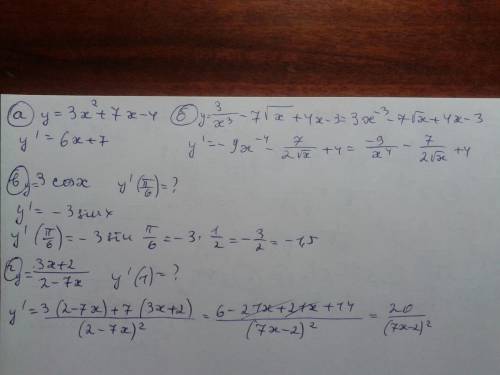 а) y = 3x² + 7x - 4 б) y = 3/x³ - 7√x + 4x - 3 = 3x⁻³ - 7√x + 4x - 3
y' = 6x + 7 y' = -9x⁻⁴ - 7/(2√x) + 4 = -9/x⁴ - 7/(2√x) + 4
в) y = 3 cosx y'(π/6) = ?
y' = -3 sin x
y'(π/6) = -3 sin π/6 = -3 · 1/2 = -3/2 = -1,5
г) y = (3x+2)/(2-7x) y'(1) = ?
y' = (3(2-7x)+7(3x+2))/(2-7x)² = (6-21x+21x+14)/(7x-2)² = 20/(7x-2)²